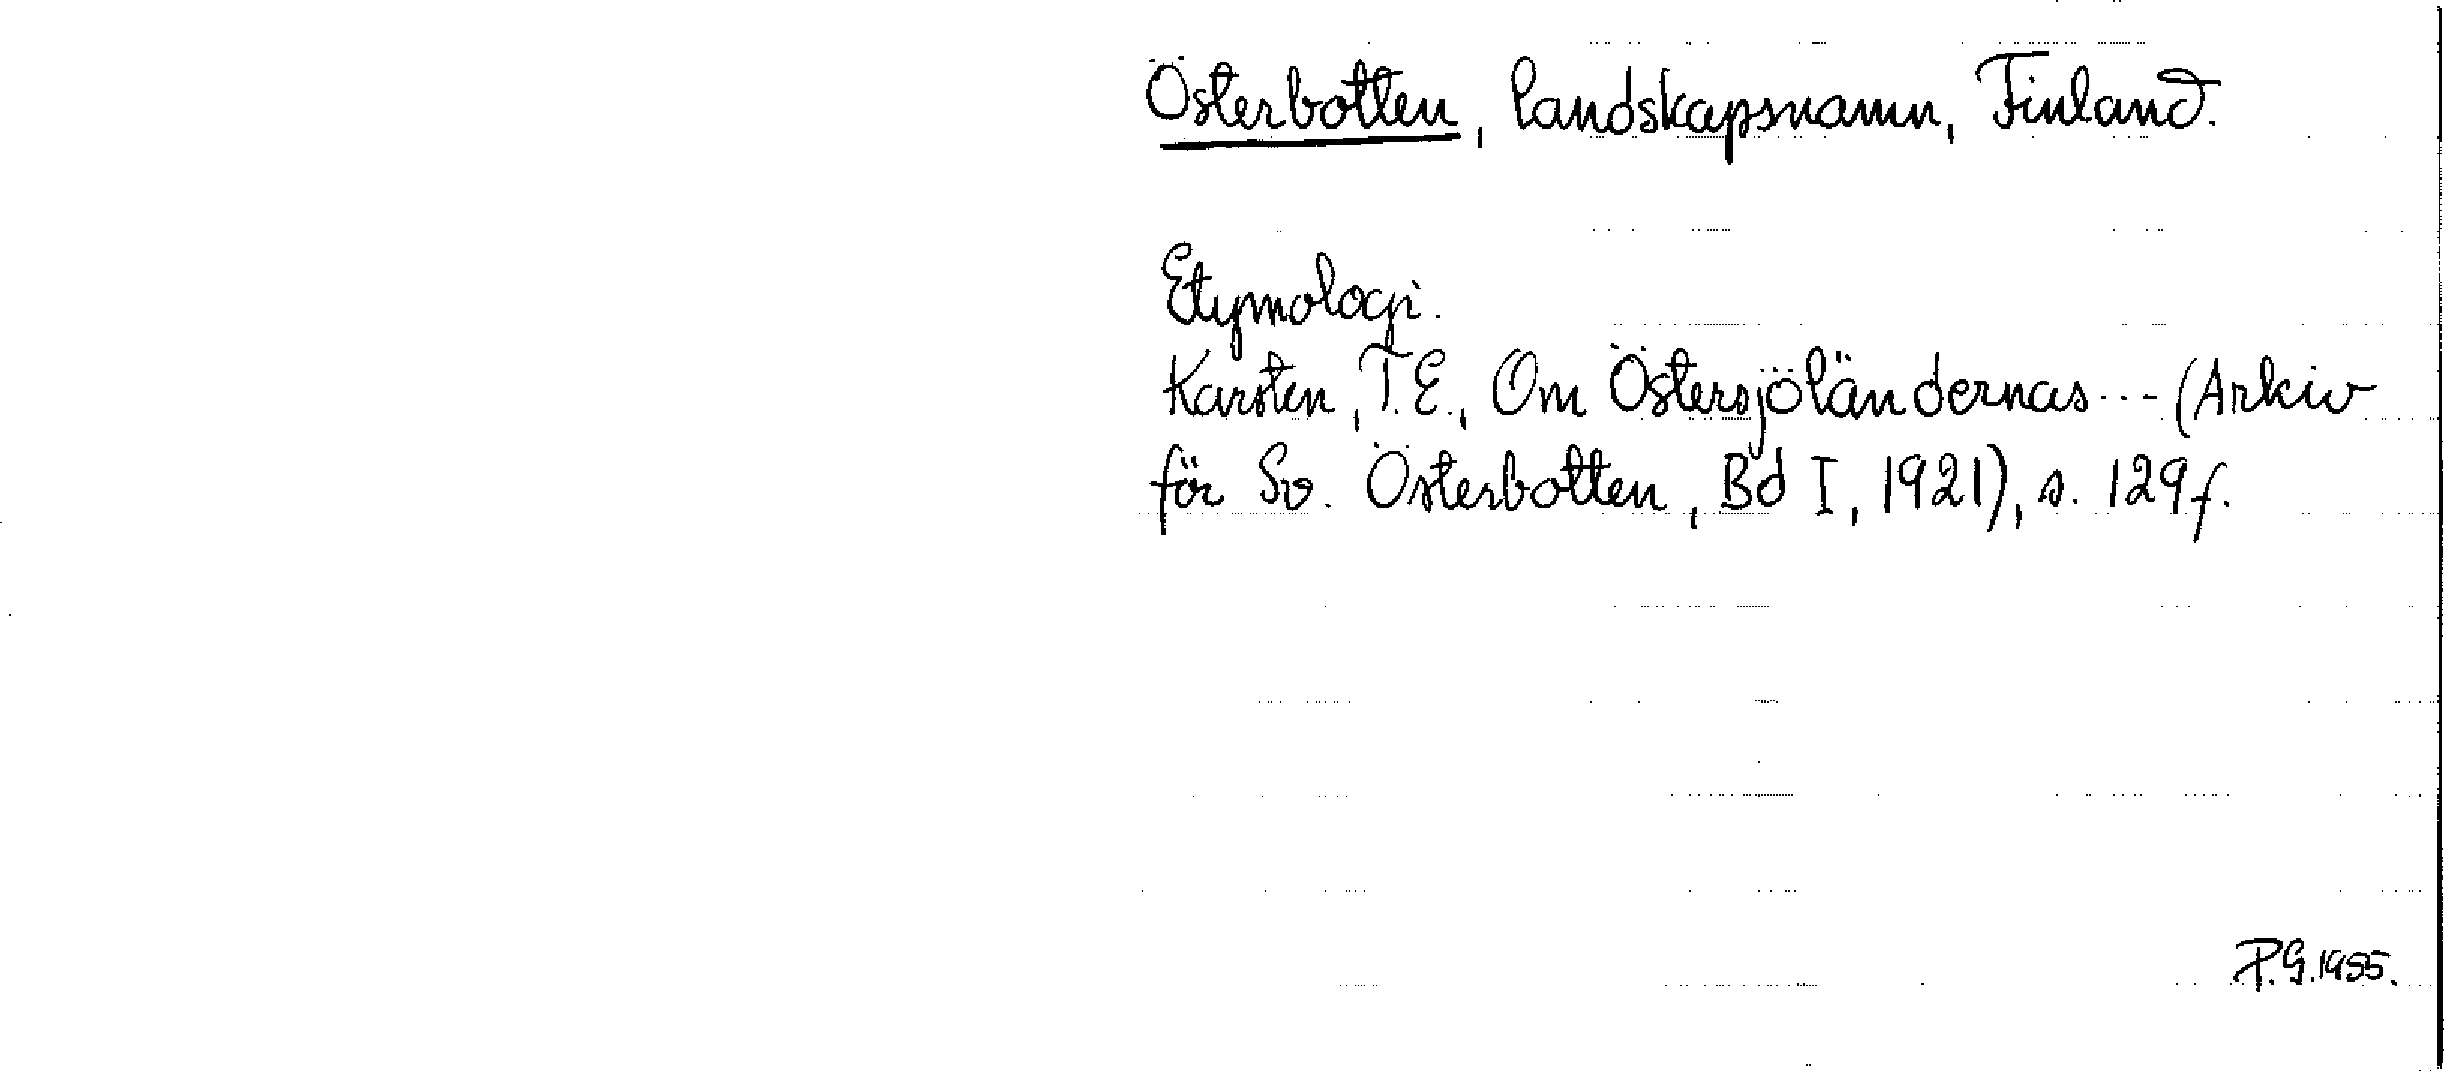 Österbotten, landskapsnamn, Finland.
Etymologi.
Karsten, T.E., Om Östersjöländernas --- (Arkiv
för Sv. Österbotten, Bd I, 1921), s. 129f.
P.G. 1955.